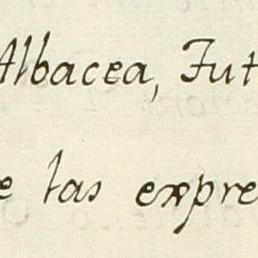 Albacea, Tut
e las expre